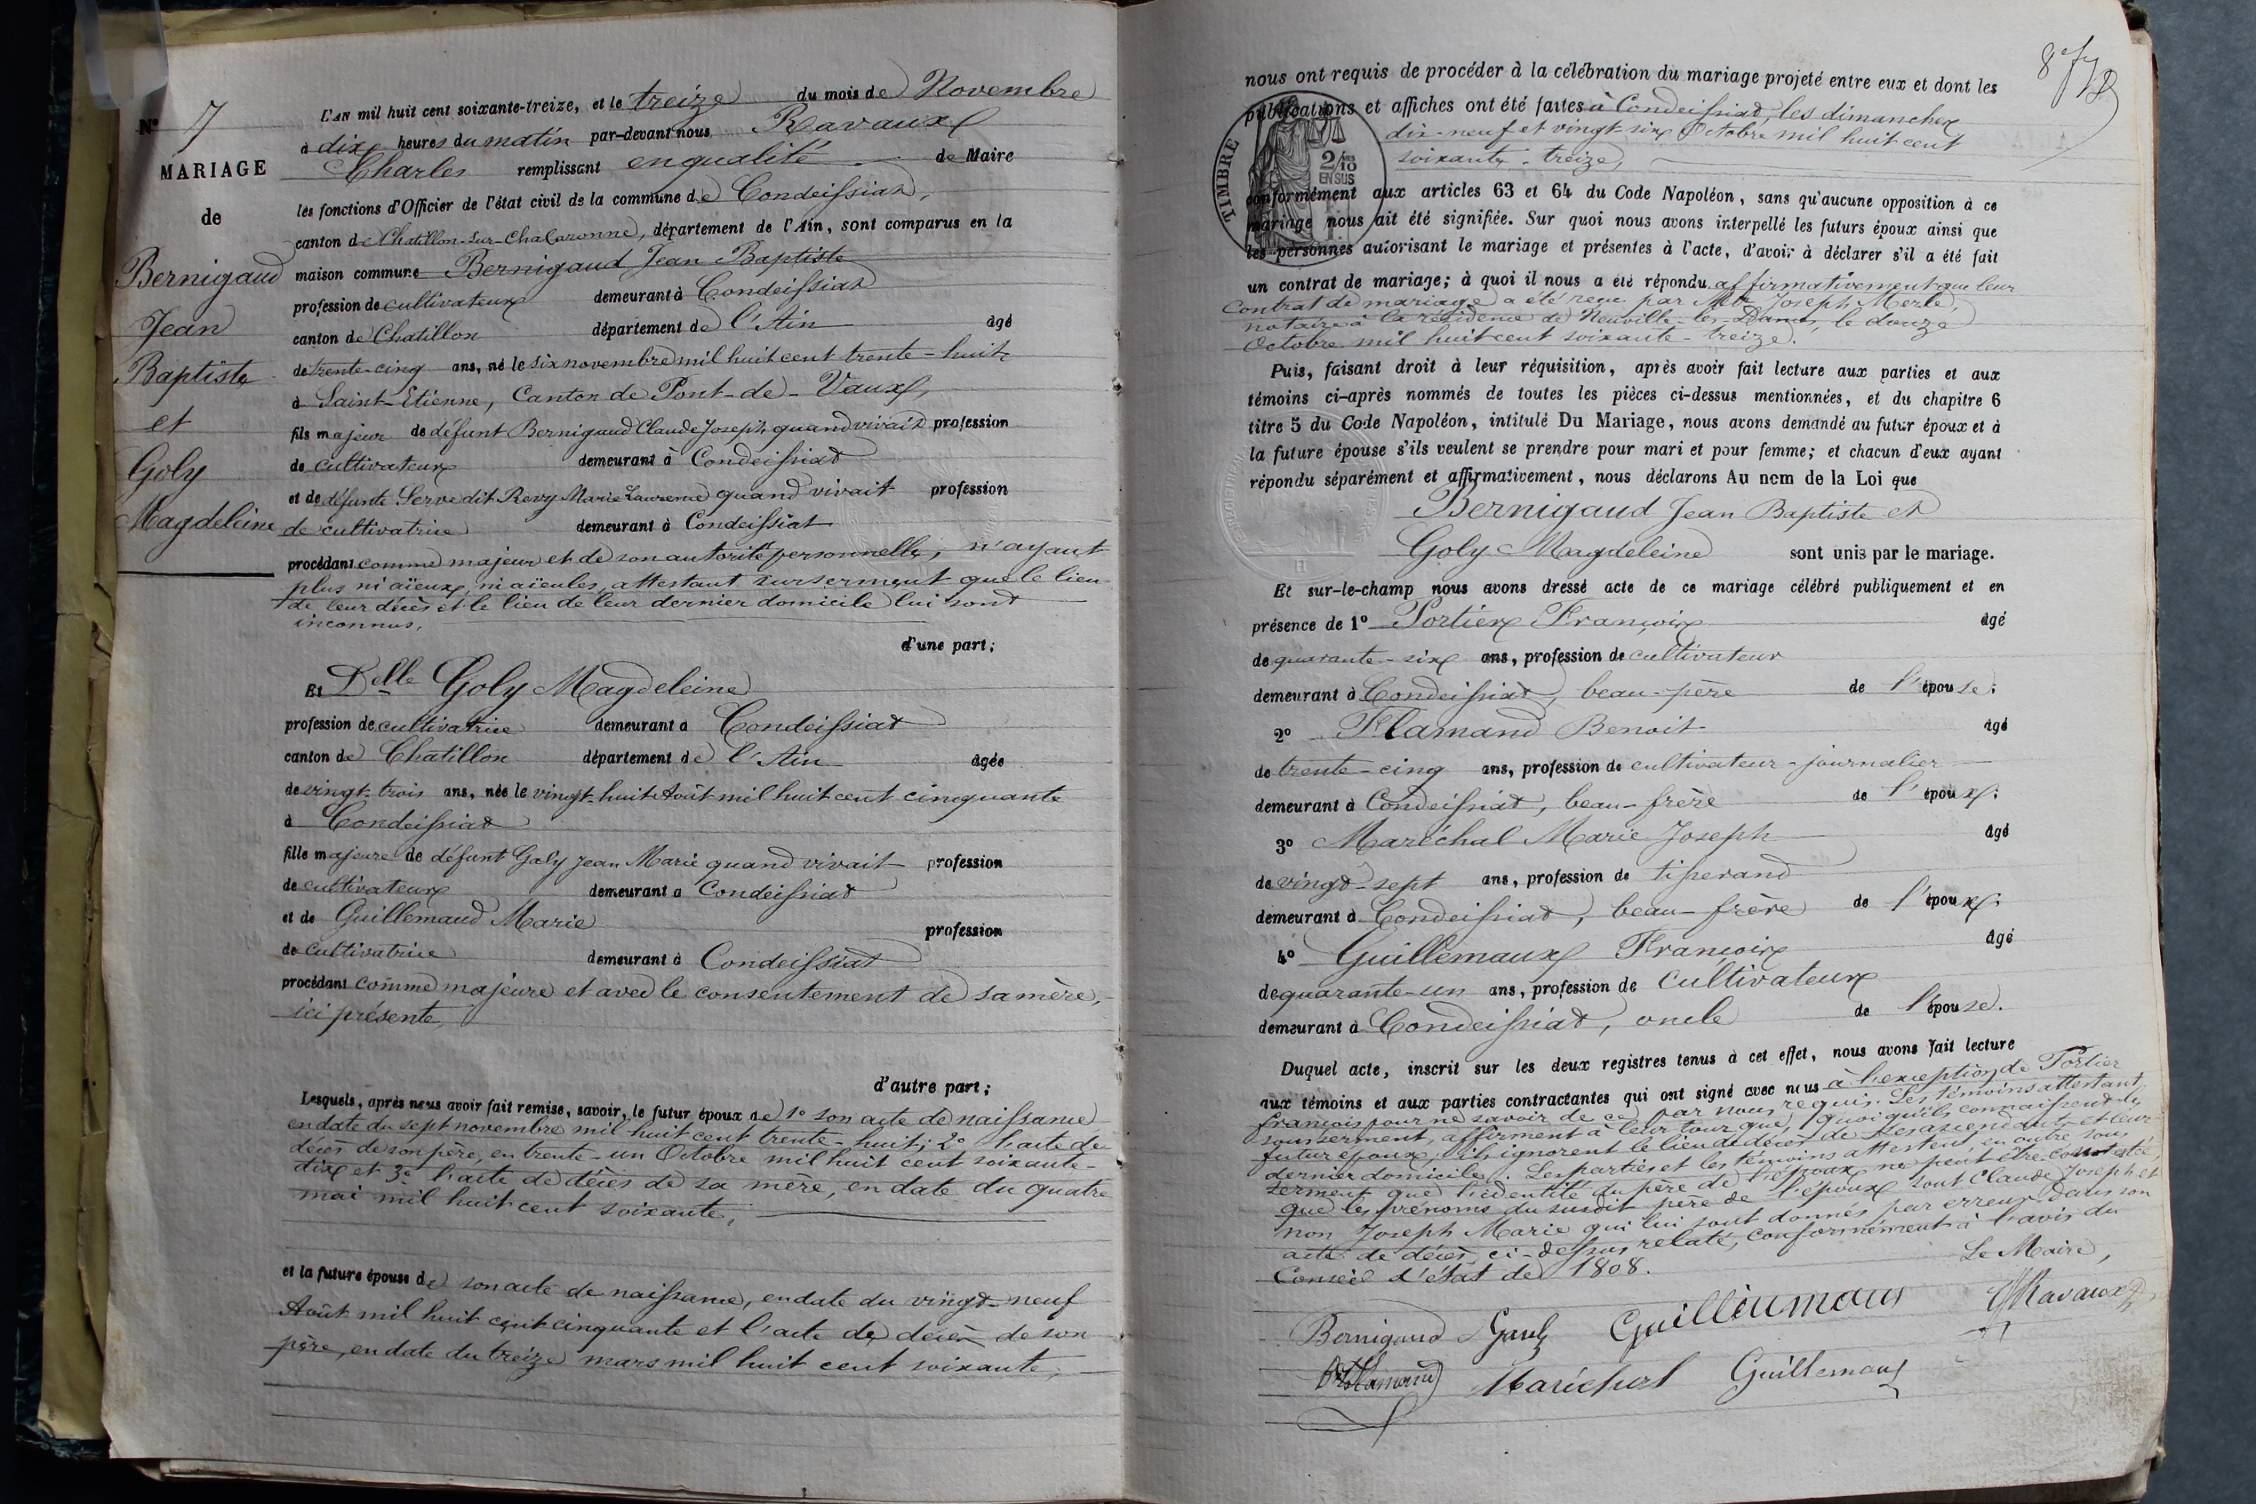 N° 7
MARIAGE
de
Bernigaud
Jean
Baptiste
et
Goly
Magdeleine
L'AN mil huit cent soixante-treize, et le treize du mois de Novembre
à dix heures du matin par-devant nous Ravaux
Charles remplissant en qualité de Maire
les fonctions d'Officier de l'état civil de la commune de Condeissiat,
canton de Chatillon-sur-Chalaronne, département de l'Ain, sont comparus en la
maison commune Bernigaud Jean Baptiste
profession de cultivateur demeurant à Condeissiat
canton de Chatillon département de l'Ain âgé
de trente-cinq ans, né le six novembre mil huit cent trente-huit
à Saint-Etienne, Canton de Pont-de-Vaux,
fils majeur de défunt Bernigaud Claude Joseph quand vivait profession
de cultivateur demeurant à Condeissiat
et de défunte Serve dit Revy Marie Laurence quand vivait profession
de cultivatrice demeurant à Condeissiat
procédant comme majeur et de son autorité personnelle, n'ayant
plus ni aïeux, ni aïeules, attestant sur serment que le lieu
de leur décès et le lieu de leur dernier domicile lui sont
inconnus.
d'une part;
Et Delle Goly Magdeleine
profession de cultivatrice demeurant à Condeissiat
canton de Chatillon département de l'Ain âgée
de vingt-trois ans, née le vingt-huit Août mil huit cent cinquante
à Condeissiat
fille majeure de défunt Goly Jean Marie quand vivait profession
de cultivateur demeurant à Condeissiat
et de Guillemaud Marie profession
de cultivatrice demeurant à Condeissiat
procédant comme majeure et avec le consentement de sa mère,
ici présente,
d'autre part;
Lesquels, après nous avoir fait remise, savoir, le futur époux de 1° son acte de naissance
en date du sept novembre mil huit cent trente-huit; 2° l'acte de
décès de son père, en trente-un Octobre mil huit cent soixante-
dix et 3° l'acte de décès de sa mère, en date du quatre
mai mil huit cent soixante,
et la future épouse de son acte de naissance, en date du vingt-neuf
Août mil huit cent cinquante et l'acte de décès de son
père, en date du treize mars mil huit cent soixante,
87
nous ont requis de procéder à la célébration du mariage projeté entre eux et dont les
publications et affiches ont été faites à Condeissiat, les dimanches
dix-neuf et vingt-six Octobre mil huit cent
soixante-treize,
TIMBRE
2/10
EN SUS
conformément aux articles 63 et 64 du Code Napoléon, sans qu'aucune opposition à ce
mariage nous ait été signifiée. Sur quoi nous avons interpellé les futurs époux ainsi que
les personnes autorisant le mariage et présentes à l'acte, d'avoir à déclarer s'il a été fait
un contrat de mariage; à quoi il nous a été répondu affirmativement que leur
Contrat de mariage a été reçu par Me Joseph Merle,
notaire à la résidence de Neuville-les-Dames, le douze
Octobre mil huit cent soixante-treize.
Puis, faisant droit à leur réquisition, après avoir fait lecture aux parties et aux
témoins ci-après nommés de toutes les pièces ci-dessus mentionnées, et du chapitre 6
titre 5 du Code Napoléon, intitulé Du Mariage, nous avons demandé au futur époux et à
la future épouse s'ils veulent se prendre pour mari et pour femme; et chacun d'eux ayant
répondu séparément et affirmativement, nous déclarons Au nom de la Loi que
Bernigaud Jean Baptiste et
Goly Magdeleine sont unis par le mariage.
Et sur-le-champ nous avons dressé acte de ce mariage célébré publiquement et en
présence de 1° Portier François âgé
de quarante-six ans, profession de cultivateur
demeurant à Condeissiat, beau-père de l'épouse.
2° Flamand Benoit âgé
de trente-cinq ans, profession de cultivateur-journalier
demeurant à Condeissiat, beau-frère de l'époux.
3° Maréchal Marie Joseph âgé
de vingt-sept ans, profession de tisserand
demeurant à Condeissiat, beau-frère de l'époux.
4° Guillemaux François âgé
de quarante-un ans, profession de cultivateur
demeurant à Condeissiat, oncle de l'épouse.
Duquel acte, inscrit sur les deux registres tenus à cet effet, nous avons fait lecture
aux témoins et aux parties contractantes qui ont signé avec nous à l'exception de Portier
François pour ne savoir de ce par nous requis. Les témoins attestant,
sous serment, affirment à leur tour que, quoiqu'ils connaissent le
futur époux, ils ignorent le lieu de décès de ses ascendants et leur
dernier domicile. Les parties et les témoins attestent en outre sous
serment que l'identité du père de l'époux ne peut être contestée,
que les prénoms du susdit père de l'époux sont Claude Joseph et
non Joseph Marie qui lui sont donnés par erreur dans son
acte de décès ci-dessus relaté, conformément à l'avis du
Conseil d'état de 1808.
Le Maire,
Bernigaud Guilliumaus Ravaux
Flamand Maréchal Guillemaus